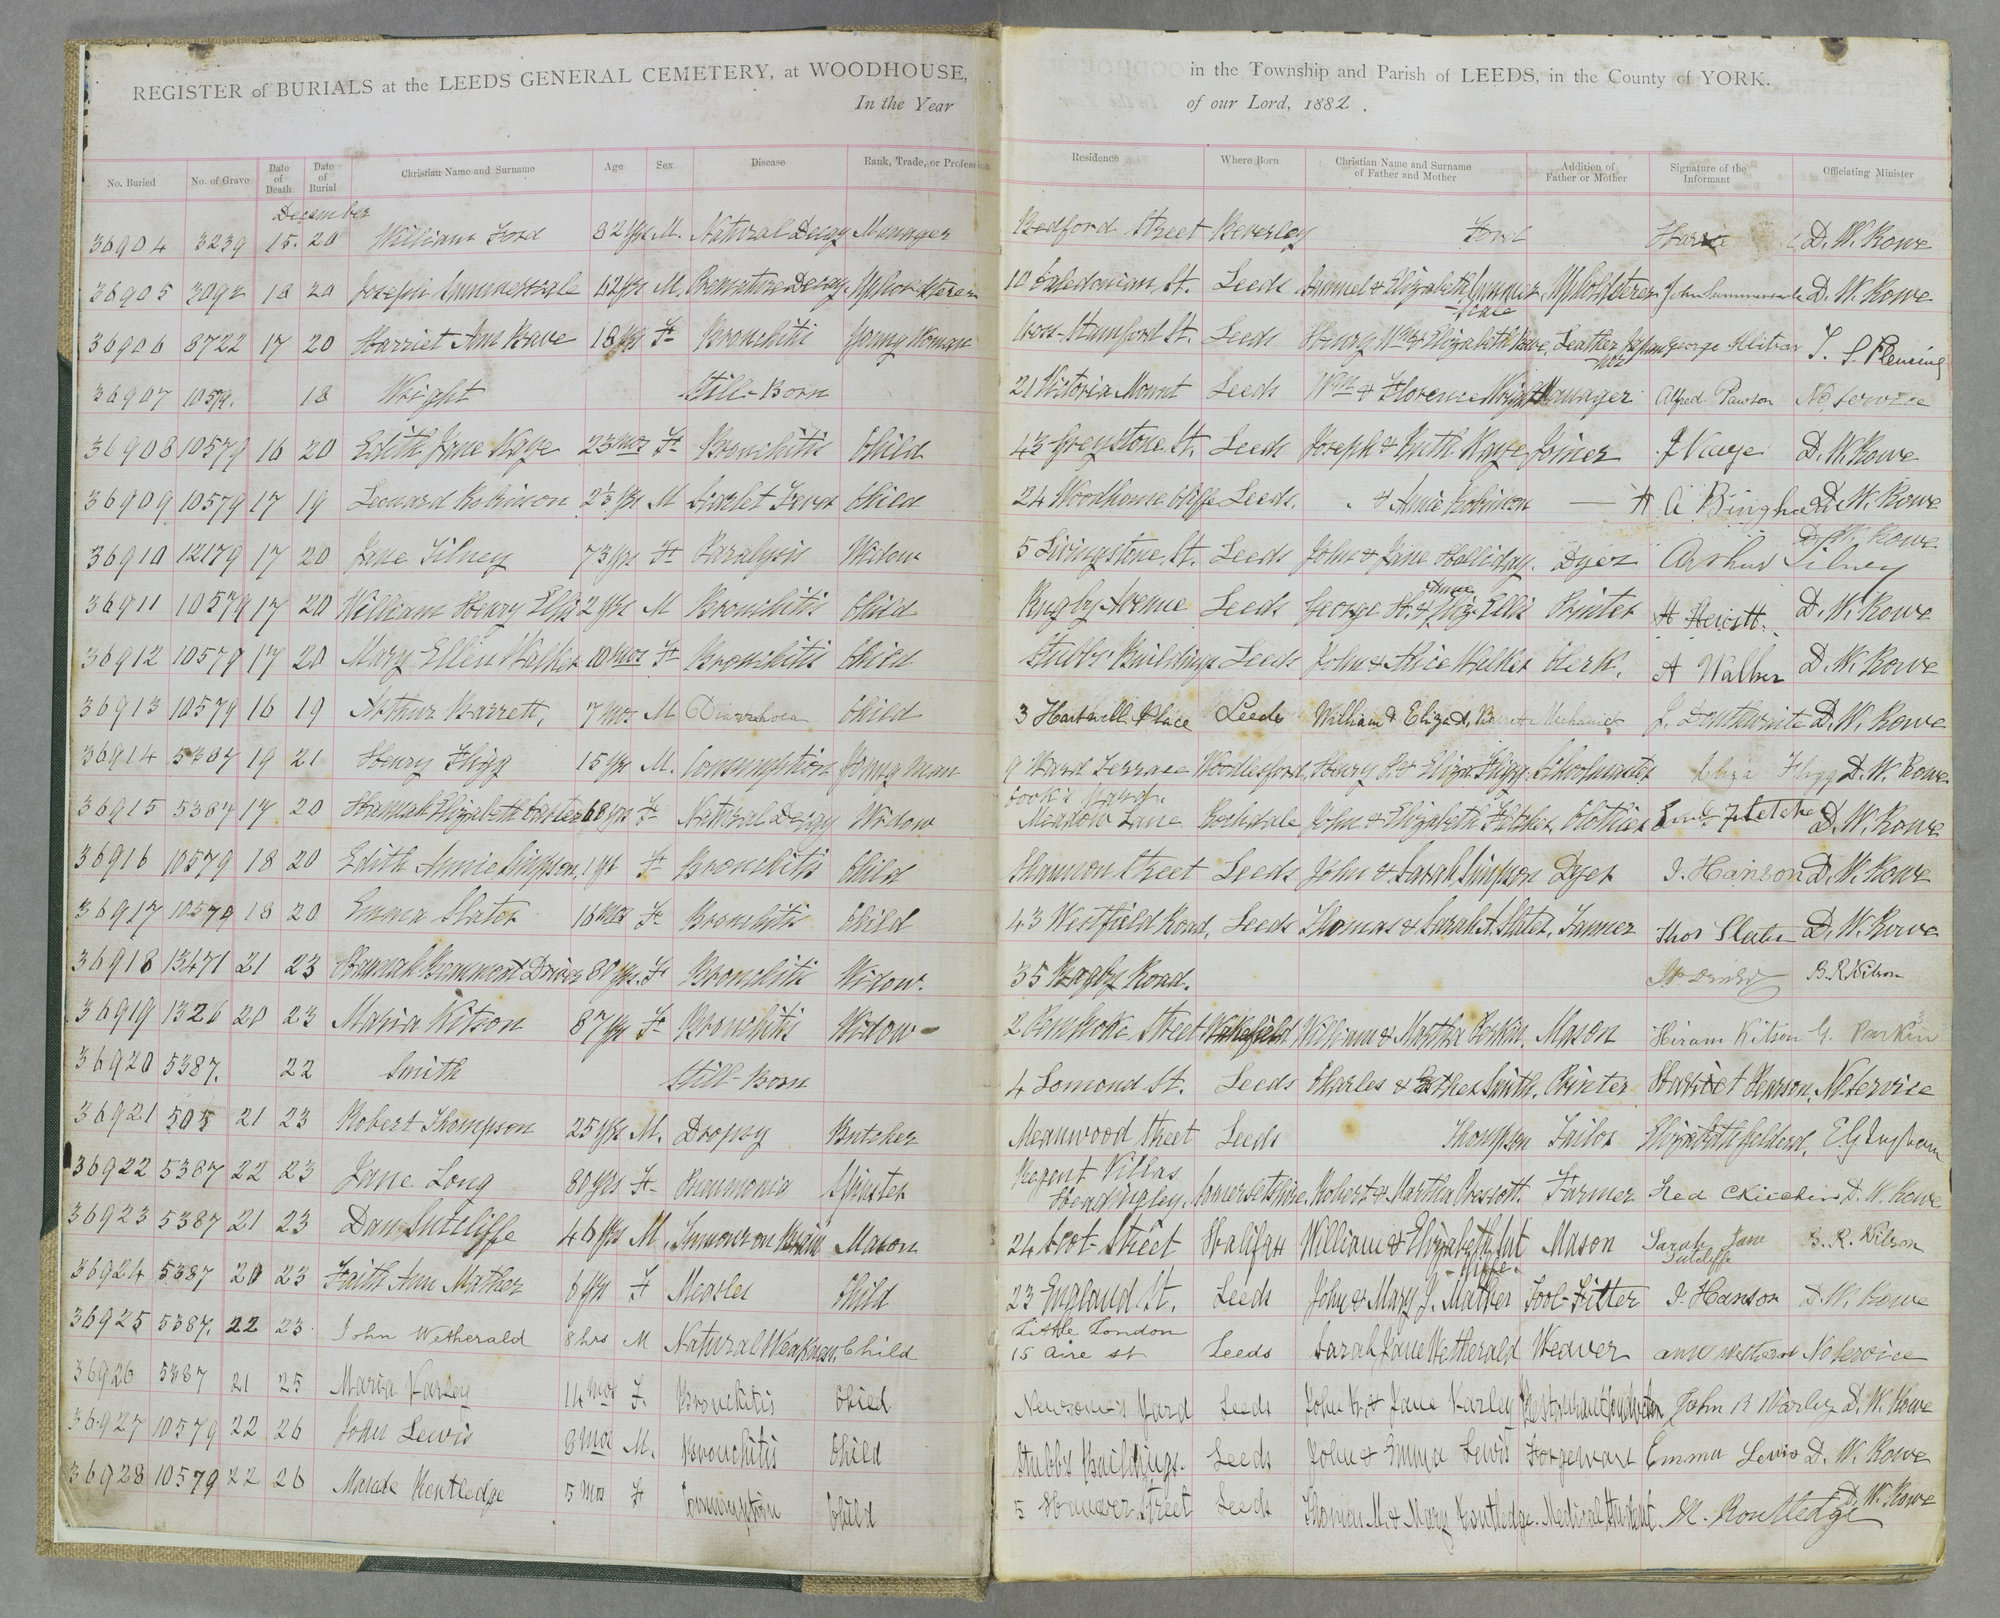 REGISTER of BURIALS at the LEEDS GENERAL CEMETERY, at WOODHOUSE, in the Township and Parish of LEEDS, in the County of YORK.
In the Year of our Lord, 1882.
No. Buried No. of Grave Date of Death Date of Burial Christian Name and Surname Age Sex Disease Rank, Trade, or Profession Residence Where Born Christian Name and Surname of Father and Mother Addition of Father or Mother Signature of the Informant Officiating Minister
December
36904 3239 15. 20 William Ford 82 yrs M. Natural Decay Manager Bedford Street Beverley Ford D. W. Rowe
36905 3092 18 20 Joseph Summerscale 62 yrs M. Premature Decay Upholsterer 10 Caledonian St. Leeds Samuel & Elizabeth Summer-scale Upholsterer John Summerscale D. W. Rowe
36906 8722 17 20 Harriet Ann Bave 18 yrs F. Bronchitis Young Woman Cross Stamford St. Leeds Henry Wm & Elizabeth Bave Leather George D. S. Fleming
36907 10579. 18 Wright Still-Born 21 Victoria Mount Leeds Wm & Florence Wright Manager Alfred Pawson No Service
36908 10579 16 20 Edith Jane Kaye 23 mos F. Bronchitis Child 43 Greystone St. Leeds Joseph & Ruth Kaye Joiner J Kaye D. W. Rowe
36909 10579 17 19 Leonard Robinson 2½ yrs M Scarlet Fever Child 24 Woodhouse Cliffe Leeds. & Annie Robinson — H A Bingham D. W. Rowe
36910 12179 17 20 Jane Tilney 73 yrs F. Paralysis Widow 5 Livingstone St. Leeds John & Jane Holliday. Dyer Arthur Tilney D. W. Rowe
36911 10579 17 20 William Henry Ellis 2 yrs M Bronchitis Child Rugby Avenue Leeds George H. & Anne Eliz. Ellis Printer H Hewitt. D. W. Rowe
36912 10579 17 20 Mary Ellen Walker 10 mos F. Bronchitis Child Stubbs' Buildings Leeds John & Alice Walker Clerk. A Walker D. W. Rowe
36913 10579 16 19 Arthur Barrett, 7 mos M Diarrhoea Child 3 Hartwell Place Leeds William & Elizath. Barrett Mechanic D. W. Rowe
36914 5387 19 21 Henry Fligg 15 yrs M. Consumption Young Man 9 Ward Terrace Woodlesford, Henry & Eliza Fligg. Schoolmaster Eliza Fligg D. W. Rowe
36915 5387 17 20 Hannah Elizabeth Carter 68 yrs F. Natural Decay Widow Cook's Yard. Meadow Lane Rochdale John & Elizabeth Fletcher, Clothier Fletcher D. W. Rowe
36916 10579 18 20 Edith Annie Simpson, 1 yr F. Bronchitis Child Shannon Street Leeds John & Sarah Simpson Dyer J. Hanson D. W. Rowe
36917 10579 18 20 Emma Slater 16 mos F. Bronchitis Child 43 Westfield Road, Leeds Thomas & Sarah A. Slater, Tanner Thos Slater D. W. Rowe
36918 13471 21 23 Hannah Beaumont Driver 80 yrs. F. Bronchitis Widow. 35 Bagby Road. B. R. Wilson
36919 1326 20 23 Maria Kitson 87 yrs F. Bronchitis Widow 2 Pembroke Street Wakefield William & Martha Perkin, Mason Hiram Kitson G. Parkin
36920 5387. 22 Smith Still-Born 4 Lomond St. Leeds Charles & Esther Smith. Printer Harriet Pearson. No Service
36921 505 21 23 Robert Thompson 25 yrs M. Dropsy Butcher Meanwood Street Leeds Thompson Tailor Elizabeth
36922 5387 22 23 Jane Long 80 yrs F. Pneumonia Spinster Regent Villas Headingley. Somersetshire, Robert & Martha Prescott. Farmer D. W. Rowe
36923 5387 21 23 Dan Sutcliffe 46 yrs M. Tumour on Brain Mason 24 Cost Street Halifax William & Elizabeth Sut-cliffe. Mason Sarah Jane Sutcliffe B. R. Wilson
36924 5387 20 23 Faith Ann Mather 6 yrs F. Measles Child 23 England St. Leeds John & Mary J. Mather Tool-Fitter J. Hanson D. W. Rowe
36925 5387. 22 23. John Wetherald 8 hrs M Natural Weakness. Child Little London 15 Aire st Leeds Sarah Jane Wetherald Weaver Ann Wetherald No Service
36926 5387 21 25 Maria Varley 14 mos F. Bronchitis Child Newsome's Yard Leeds John R. & Jane Varley John R Varley D. W. Rowe
36927 10579 22 26 John Lewis 8 mos M. Bronchitis Child Stubbs Buildings. Leeds John & Emma Lewis Forgeman Emma Lewis D. W. Rowe
36928 10579 22 26 Maude Routledge 5 mos F. Consumption Child 5 Hanover Street Leeds Thomas M. & Mary Routledge. Medical Student. M. Routledge D. W. Rowe